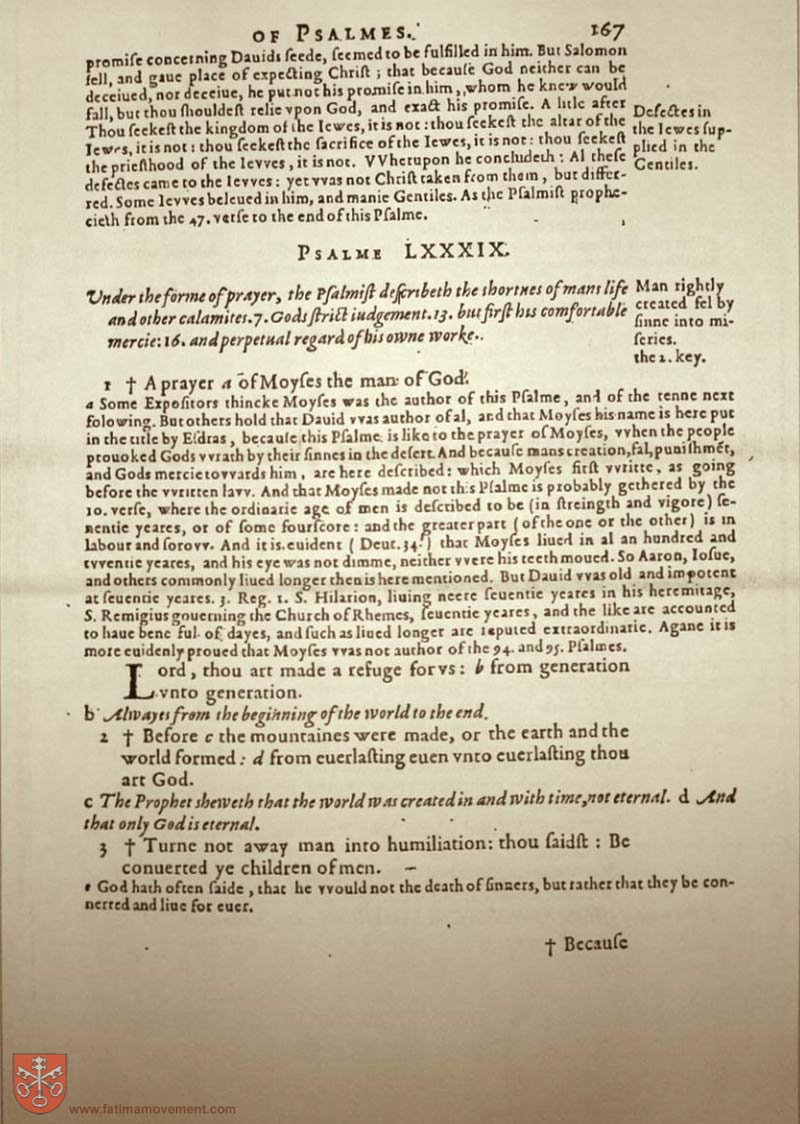 OF PSALMES. 167
promiſe concerning Dauids ſeede, ſeemed to be fulfilled in him. But Salomon
fell, and gaue place of expecting Chriſt; that becauſe God neither can be
deceiued, nor deceiue, he put not his promiſe in him, whom he knew would
fall, but thou ſhouldeſt relie vpon God, and exact his promiſe. A litle after
Thou ſeekeſt the kingdom of the Iewes, it is not: thou ſeekeſt the altar of the
Iewes, it is not: thou ſeekeſt the ſacrifice of the Iewes, it is not: thou ſeekeſt
the prieſthood of the Ievves, it is not. VVherupon he concludeth: Al theſe
defectes came to the Ievves: yet vvas not Chriſt taken from them, but differ-
red. Some Ievves beleued in him, and manie Gentiles. As the Pſalmiſt prophe-
cieth from the 47. verſe to the end of this Pſalme.
Defectes in
the Iewes ſup-
plied in the
Gentiles.
PSALME LXXXIX.
Vnder the forme of prayer, the Pſalmiſt deſcribeth the shortnes of mans life
and other calamites. 7. Gods ſtrict iudgement. 13. but firſt his comfortable
mercie: 16. and perpetual regard of his owne worke..
Man rightly
created fel by
ſinne into mi-
ſeries.
the 2. key.
1 † A prayer a of Moyſes the man of God.
a Some Expoſitors thincke Moyſes was the author of this Pſalme, and of the tenne next
folowing. But others hold that Dauid vvas author of al, and that Moyſes his name is here put
in the title by Eſdras, becauſe this Pſalme is like to the prayer of Moyſes, vvhen the people
prouoked Gods vvrath by their ſinnes in the deſert. And becauſe mans creation, fal, puniſhmẽt,
and Gods mercie tovvards him, are here deſcribed: which Moyſes firſt vvritte, as going
before the vvritten lavv. And that Moyſes made not this Pſalme is probably gethered by the
10. verſe, where the ordinarie age of men is deſcribed to be (in ſtreingth and vigore) ſe-
uentie yeares, or of ſome fourſcore: and the greater part (of the one or the other) is in
labour and ſorovv. And it is euident (Deut. 34.) that Moyſes liued in al an hundred and
tvventie yeares, and his eye was not dimme, neither vvere his teeth moued. So Aaron, Ioſue,
and others commonly liued longer then is here mentioned. But Dauid vvas old and impotent
at ſeuentie yeares. 3. Reg. 1. S. Hilarion, liuing neere ſeuentie yeares in his heremitage,
S. Remigius gouerning the Church of Rhemes, ſeuentie yeares, and the like are accounted
to haue bene ful of dayes, and ſuch as liued longer are reputed extraordinarie. Agane it is
more euidenly proued that Moyſes vvas not author of the 94. and 95. Pſalmes.
Lord, thou art made a refuge for vs: b from generation
vnto generation.
b Alwayes from the beginning of the world to the end.
2 † Before c the mountaines were made, or the earth and the
world formed: d from euerlaſting euen vnto euerlaſting thou
art God.
c The Prophet sheweth that the world was created in and with time, not eternal. d And
that only God is eternal.
3 † Turne not away man into humiliation: thou ſaidſt: Be
conuerted ye children of men.
e God hath often ſaide, that he vvould not the death of ſinners, but rather that they be con-
uerted and liue for euer.
† Becauſe
www.fatimamovement.com